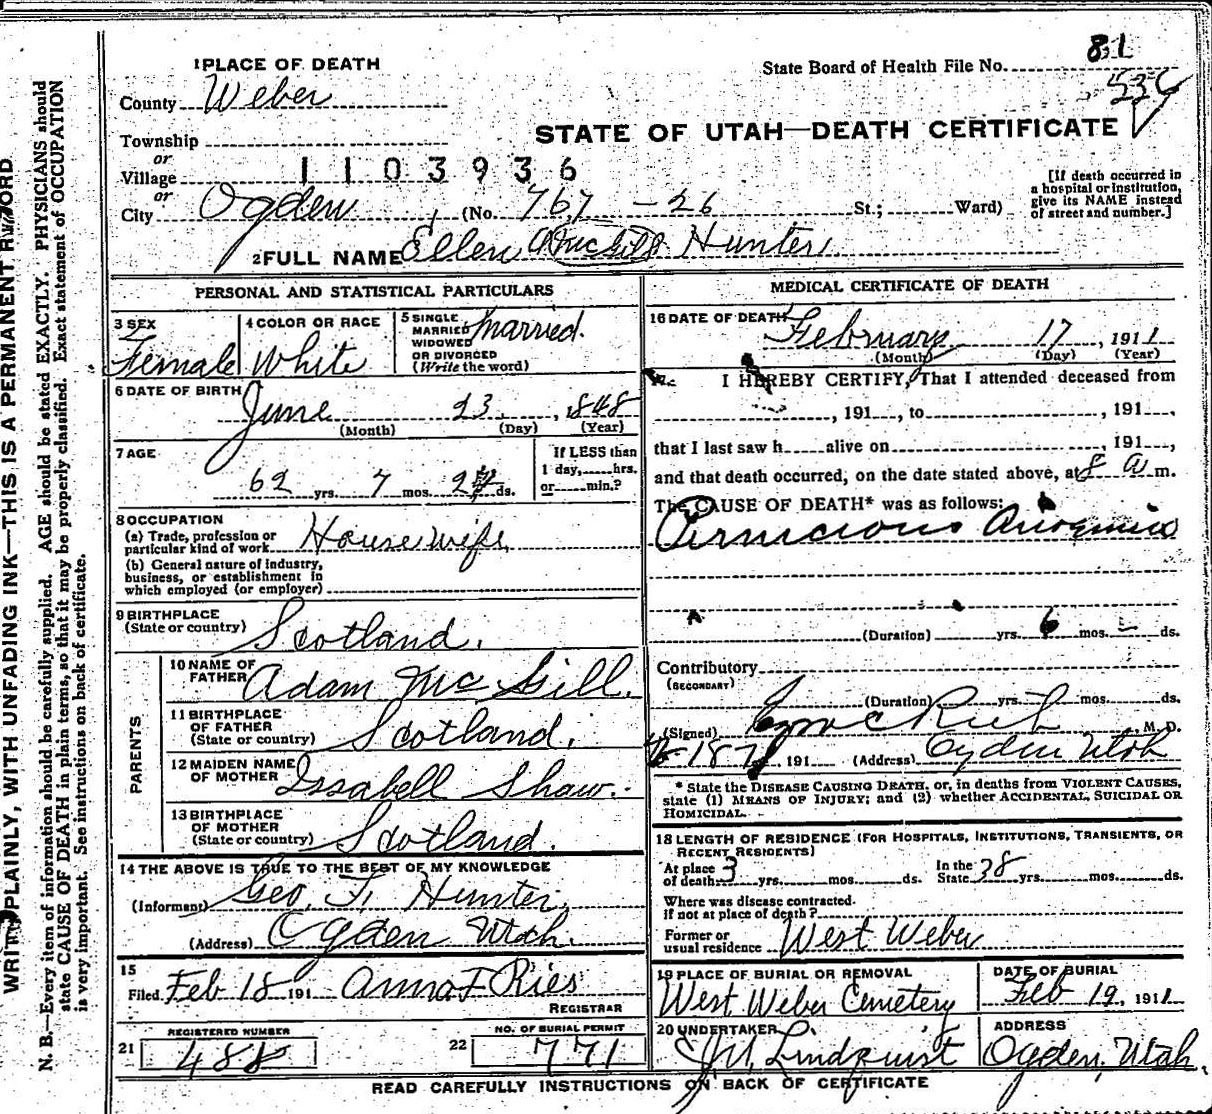 81
1 PLACE OF DEATH
State Board of Health File No.
536
County Weber
STATE OF UTAH—DEATH CERTIFICATE
Township
or
Village 1103936
or
City Ogden, (No. 767 - 26 St.; Ward)
[If death occurred in
a hospital or institution,
give its NAME instead
of street and number.]
2 FULL NAME Ellen McGill Hunter
PERSONAL AND STATISTICAL PARTICULARS
3 SEX
Female
4 COLOR OR RACE
White
5 SINGLE
MARRIED
WIDOWED
OR DIVORCED
(Write the word)
Married.
6 DATE OF BIRTH
June 23, 1848
(Month) (Day) (Year)
7 AGE
62 yrs. 7 mos. ds.
If LESS than
1 day, hrs.
or min.?
8 OCCUPATION
(a) Trade, profession or
particular kind of work House wife
(b) General nature of industry,
business, or establishment in
which employed (or employer)
9 BIRTHPLACE
(State or country) Scotland.
PARENTS
10 NAME OF
FATHER Adam McGill.
11 BIRTHPLACE
OF FATHER
(State or country) Scotland.
12 MAIDEN NAME
OF MOTHER Issabell Shaw.
13 BIRTHPLACE
OF MOTHER
(State or country) Scotland.
14 THE ABOVE IS TRUE TO THE BEST OF MY KNOWLEDGE
(Informant) Geo. T. Hunter,
(Address) Ogden Utah.
15
Filed Feb 18 191 Anna F Ries
REGISTRAR
21 REGISTERED NUMBER
488
22 NO. OF BURIAL PERMIT
771
MEDICAL CERTIFICATE OF DEATH
16 DATE OF DEATH
February 17, 1911
(Month) (Day) (Year)
I HEREBY CERTIFY, That I attended deceased from
, 191 , to , 191 ,
that I last saw h alive on , 191 ,
and that death occurred, on the date stated above, at 8 a m.
The CAUSE OF DEATH* was as follows:
Pernicious Anaemia
(Duration) yrs. 6 mos. – ds.
Contributory
(SECONDARY)
(Duration) yrs. mos. ds.
(Signed) Rich M. D.
191 (Address) Ogden Utah
* State the DISEASE CAUSING DEATH, or, in deaths from VIOLENT CAUSES,
state (1) MEANS OF INJURY; and (2) whether ACCIDENTAL, SUICIDAL OR
HOMICIDAL.
18 LENGTH OF RESIDENCE (FOR HOSPITALS, INSTITUTIONS, TRANSIENTS, OR
RECENT RESIDENTS)
At place
of death 3 yrs. mos. ds.
In the
State 38 yrs. mos. ds.
Where was disease contracted.
if not at place of death?
Former or
usual residence West Weber
19 PLACE OF BURIAL OR REMOVAL
West Weber Cemetery
DATE OF BURIAL
Feb 19, 1911
20 UNDERTAKER
Lindquist
ADDRESS
Ogden, Utah
READ CAREFULLY INSTRUCTIONS ON BACK OF CERTIFICATE
WRITE PLAINLY, WITH UNFADING INK—THIS IS A PERMANENT RECORD
N. B.—Every item of information should be carefully supplied. AGE should be stated EXACTLY. PHYSICIANS should
state CAUSE OF DEATH in plain terms, so that it may be properly classified. Exact statement of OCCUPATION
is very important. See instructions on back of certificate.